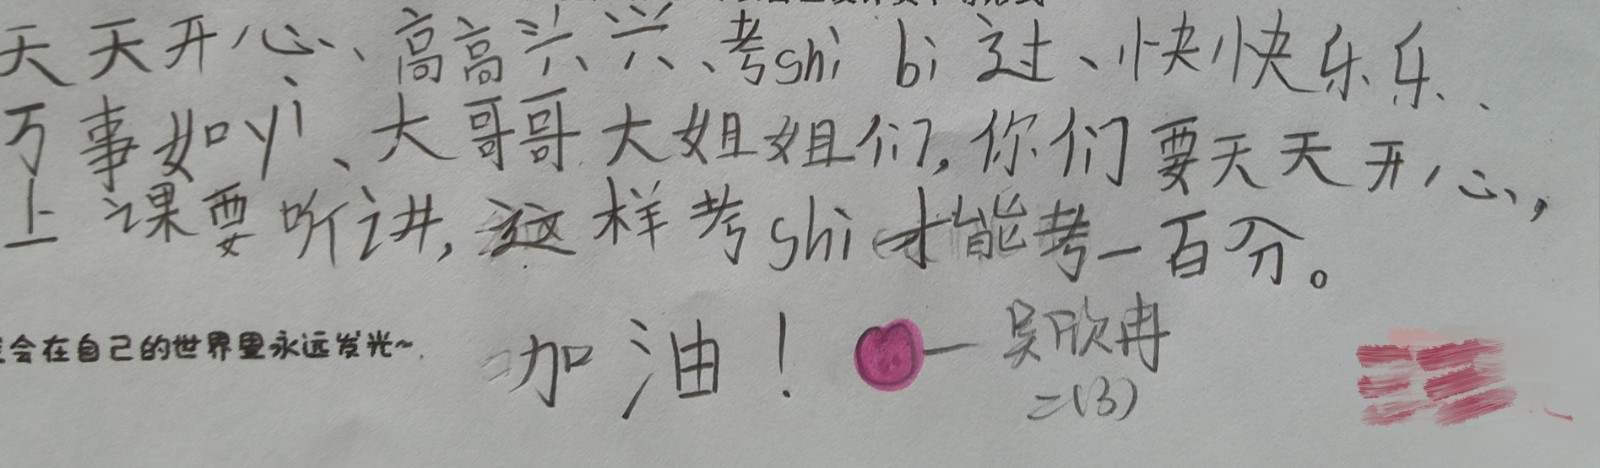 天天开心、高高兴兴、考shi bi过、快快乐乐、
万事如yi、大哥哥大姐姐们,你们要天天开心,
上课要听讲,这样考shi才能考一百分。
会在自己的世界里永远发光~
加油!—吴欣冉
二(3)